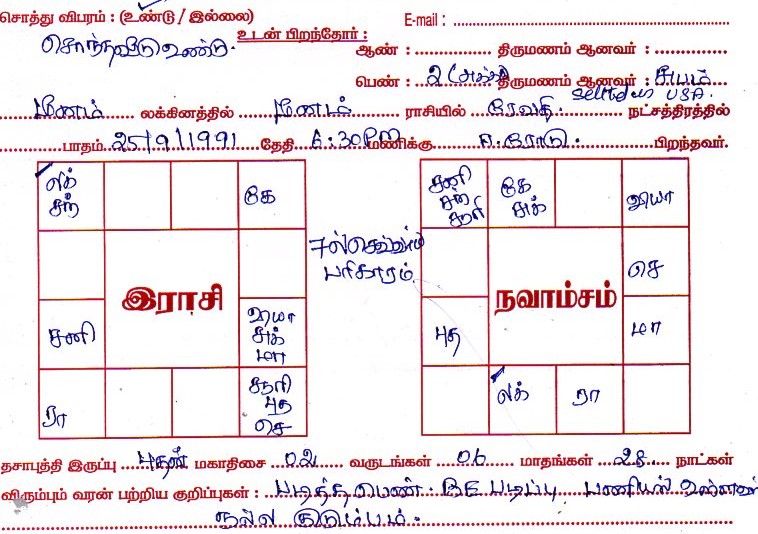 சொத்து விபரம் : (உண்டு / இல்லை)
E-mail :
சொந்தவீடு உண்டு.
உடன் பிறந்தோர் :
ஆண் : திருமணம் ஆனவர் :
பெண் : 2 (அக்கா) திருமணம் ஆனவர் : சுபம்
USA.
மீனம் லக்கினத்தில் மீனம் ராசியில் ரேவதி. நட்சத்திரத்தில்
பாதம் 25/9/1991 தேதி 6:30PM மணிக்கு ஈரோடு. பிறந்தவர்.
லக்
சந்
கே
சனி
இராசி
சுக்
மா
ரா
சூரி
புத
செ
7ல் செவ்வாய்
பரிகாரம்.
சனி
சந்
சூரி
கே
சுக்
செ
நவாம்சம்
புத
மா
லக்
ரா
தசாபுத்தி இருப்பு புதன் மகாதிசை 02 வருடங்கள் 06 மாதங்கள் 28 நாட்கள்
விரும்பும் வரன் பற்றிய குறிப்புகள் : படித்த பெண். BE படிப்பு பணியில் உள்ளவர்
நல்ல குடும்பம்.